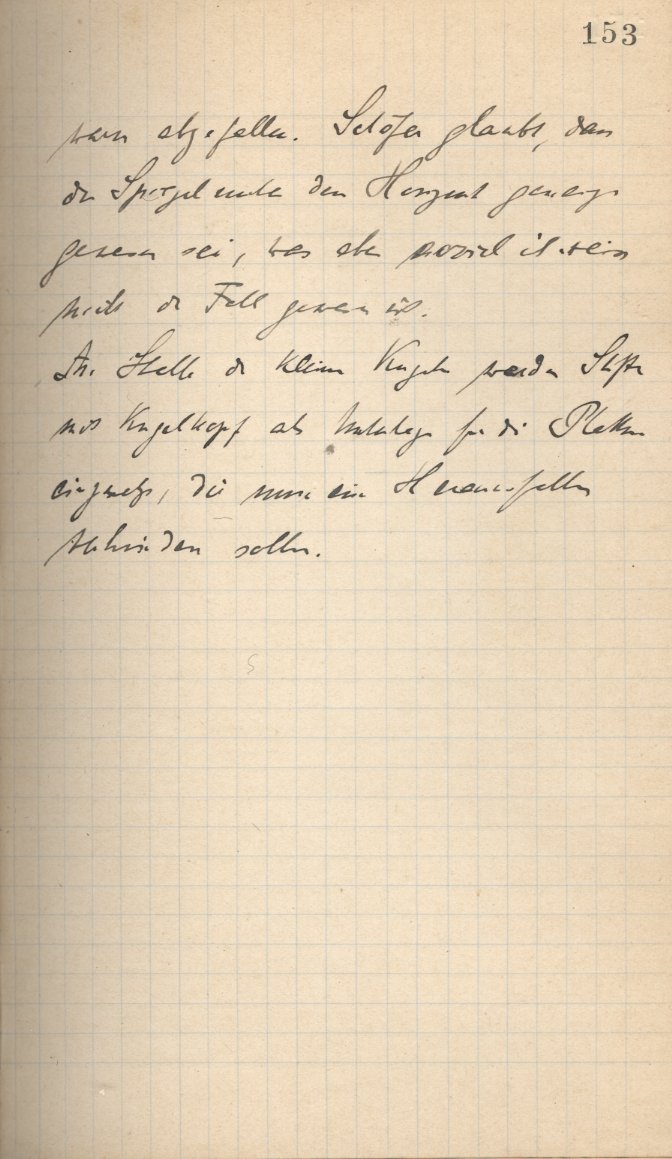 153
waren abgefallen. Schöfer glaubt, dass
der Spiegel unter den Horizont geneigt
gewesen sei, was aber soviel ich weiss
nicht der Fall gewesen ist.
An Stelle der kleinen Kugeln werden Stifte
mit Kugelkopf als Unterlage für die Platten
eingesetzt, die nun ein Herausfallen
verhindern sollen.